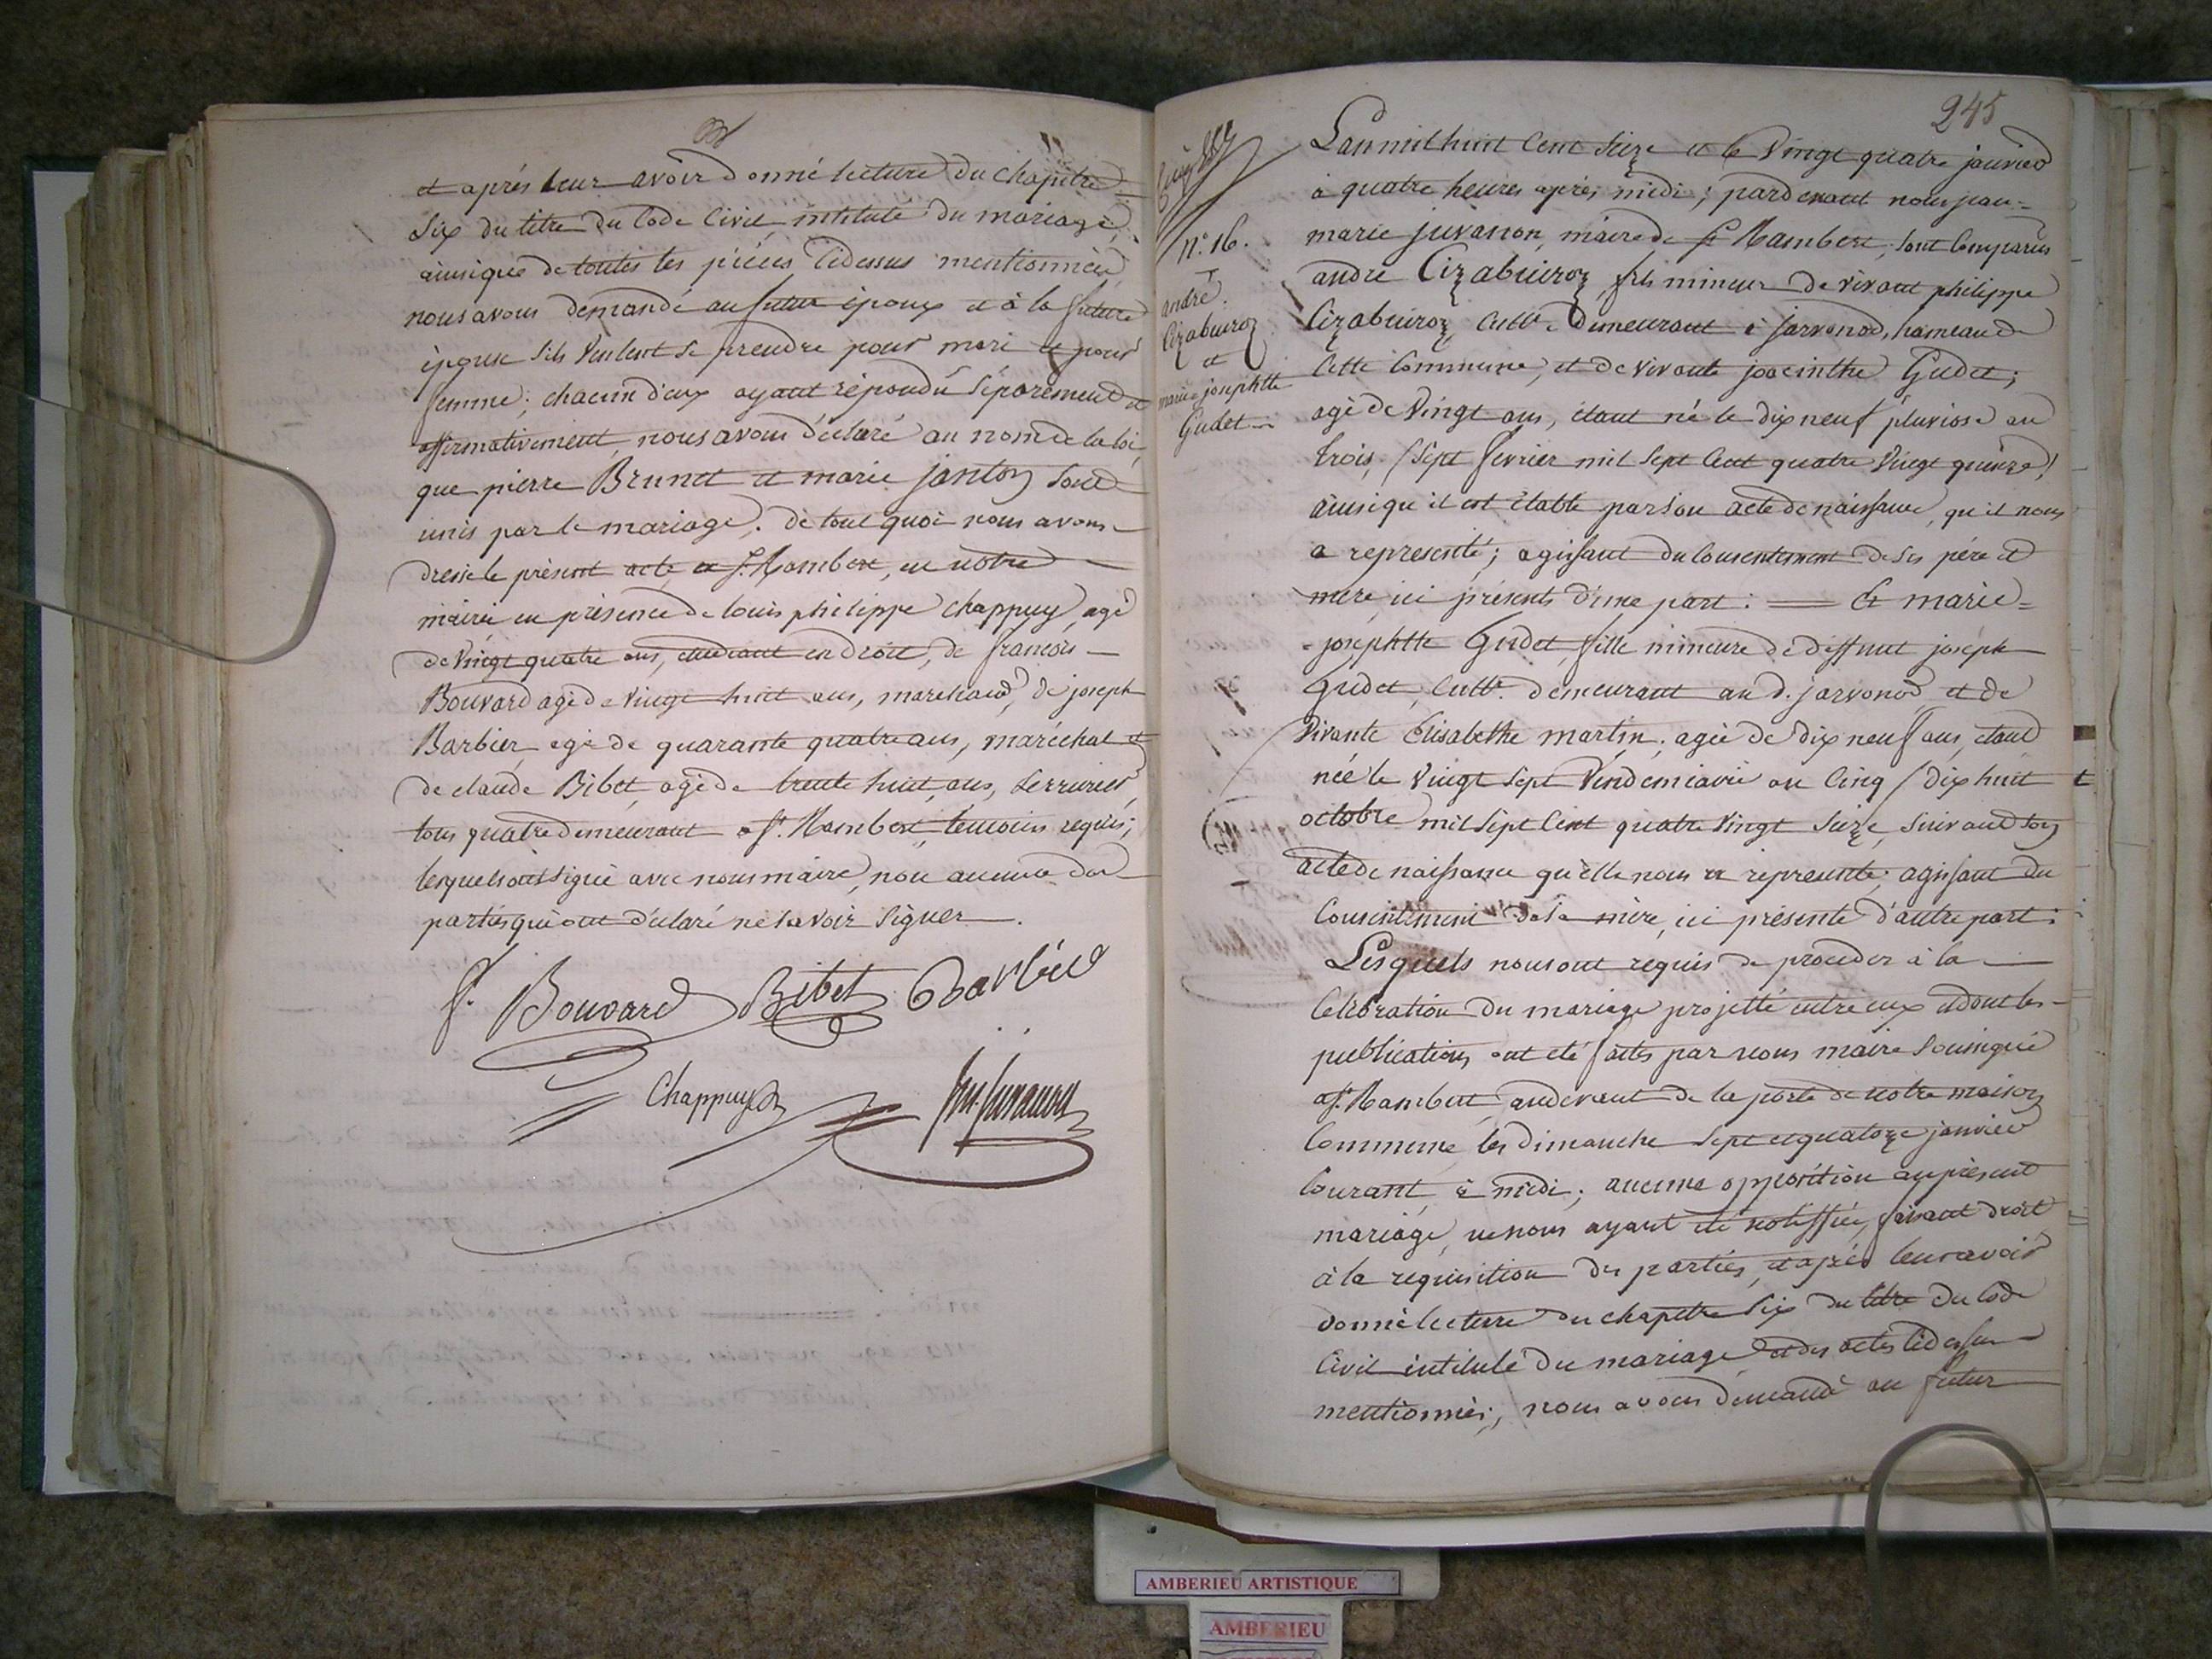 et après leur avoir donné lecture du chapitre
Six du titre du Code Civil intitulé du mariage,
ainsique de toutes les pièces cidessus mentionnées,
nous avons demandé au futur époux et à la future
épouse s'ils veulent se prendre pour mari et pour
femme; chacun d'eux ayant répondu séparément et
affirmativement, nous avons déclaré au nom de la loi,
que pierre Brunet et marie janton sont
unis par le mariage. de tout quoi nous avons
dressé le présent acte a St. Rambert, en notre
mairie en présence de louis philippe chappuy, agé
de vingt quatre ans, étudiant en droit, de françois
Bouvard agé de vingt huit ans, marchand, de joseph
Barbier, agé de quarante quatre ans, maréchal et
de claude Bibet, agé de trente huit ans, serrurier,
tous quatre demeurant a St. Rambert, temoins requis;
lesquels ont signé avec nous maire, non aucune des
parties qui ont déclaré ne savoir signer.
f. Bouvard Bibet Barbier
Chappuy jm. juvanon
245
n.° 16.
andré
Cizabuiroz
et
marie josephtte
Gudet
Lan mil huit Cent Seize et le Vingt quatre janvier
à quatre heures après midi; pardevant nous jean=
marie juvanon, maire de St Rambert, sont Comparus
andré Cizabuiroz, fils mineur de vivant philippe
Cizabuiroz, Cultr. demeurant à jarvonod, hameau de
Cette Commune, et de vivante joacinthe Gudet;
agé de Vingt ans, étant né le dix neuf pluviose an
trois, (sept fevrier mil Sept Cent quatre Vingt quinze)
ainsi qu'il est établi par son acte de naissance, qu'il nous
a representé; agissant du Consentement de ses père et
mère, ici présents d'une part: Et marie=
=josephtte Gudet, fille mineure de deffunt joseph
Gudet, Cultr. demeurant au d. jarvonod, et de
Vivante Elisabethe martin; agée de dix neuf ans, étant
née le Vingt Sept Vendemiaire an Cinq (dix huit
octobre mil Sept Cent quatre Vingt Seize, suivant son
acte de naissance qu'elle nous a représenté; agissant du
Consentement de sa mère, ici présente d'autre part:
Lesquels nous ont requis de proceder à la
Célébration du mariage projetté entre eux et dont les
publications ont été faites par nous maire soussigné
a St. Rambert, audevant de la porte de notre maison
Commune les dimanche Sept et quatorze janvier
Courant, à midi; aucune opposition au présent
mariage, ne nous ayant été notiffiée, faisant droit
à la requisition des parties, et après leur avoir
donné lecture du chapitre Six du titre du Code
Civil intitulé du mariage et des actes cidessus
mentionnés; nous avons demandé au futur
AMBERIEU ARTISTIQUE
AMBERIEU